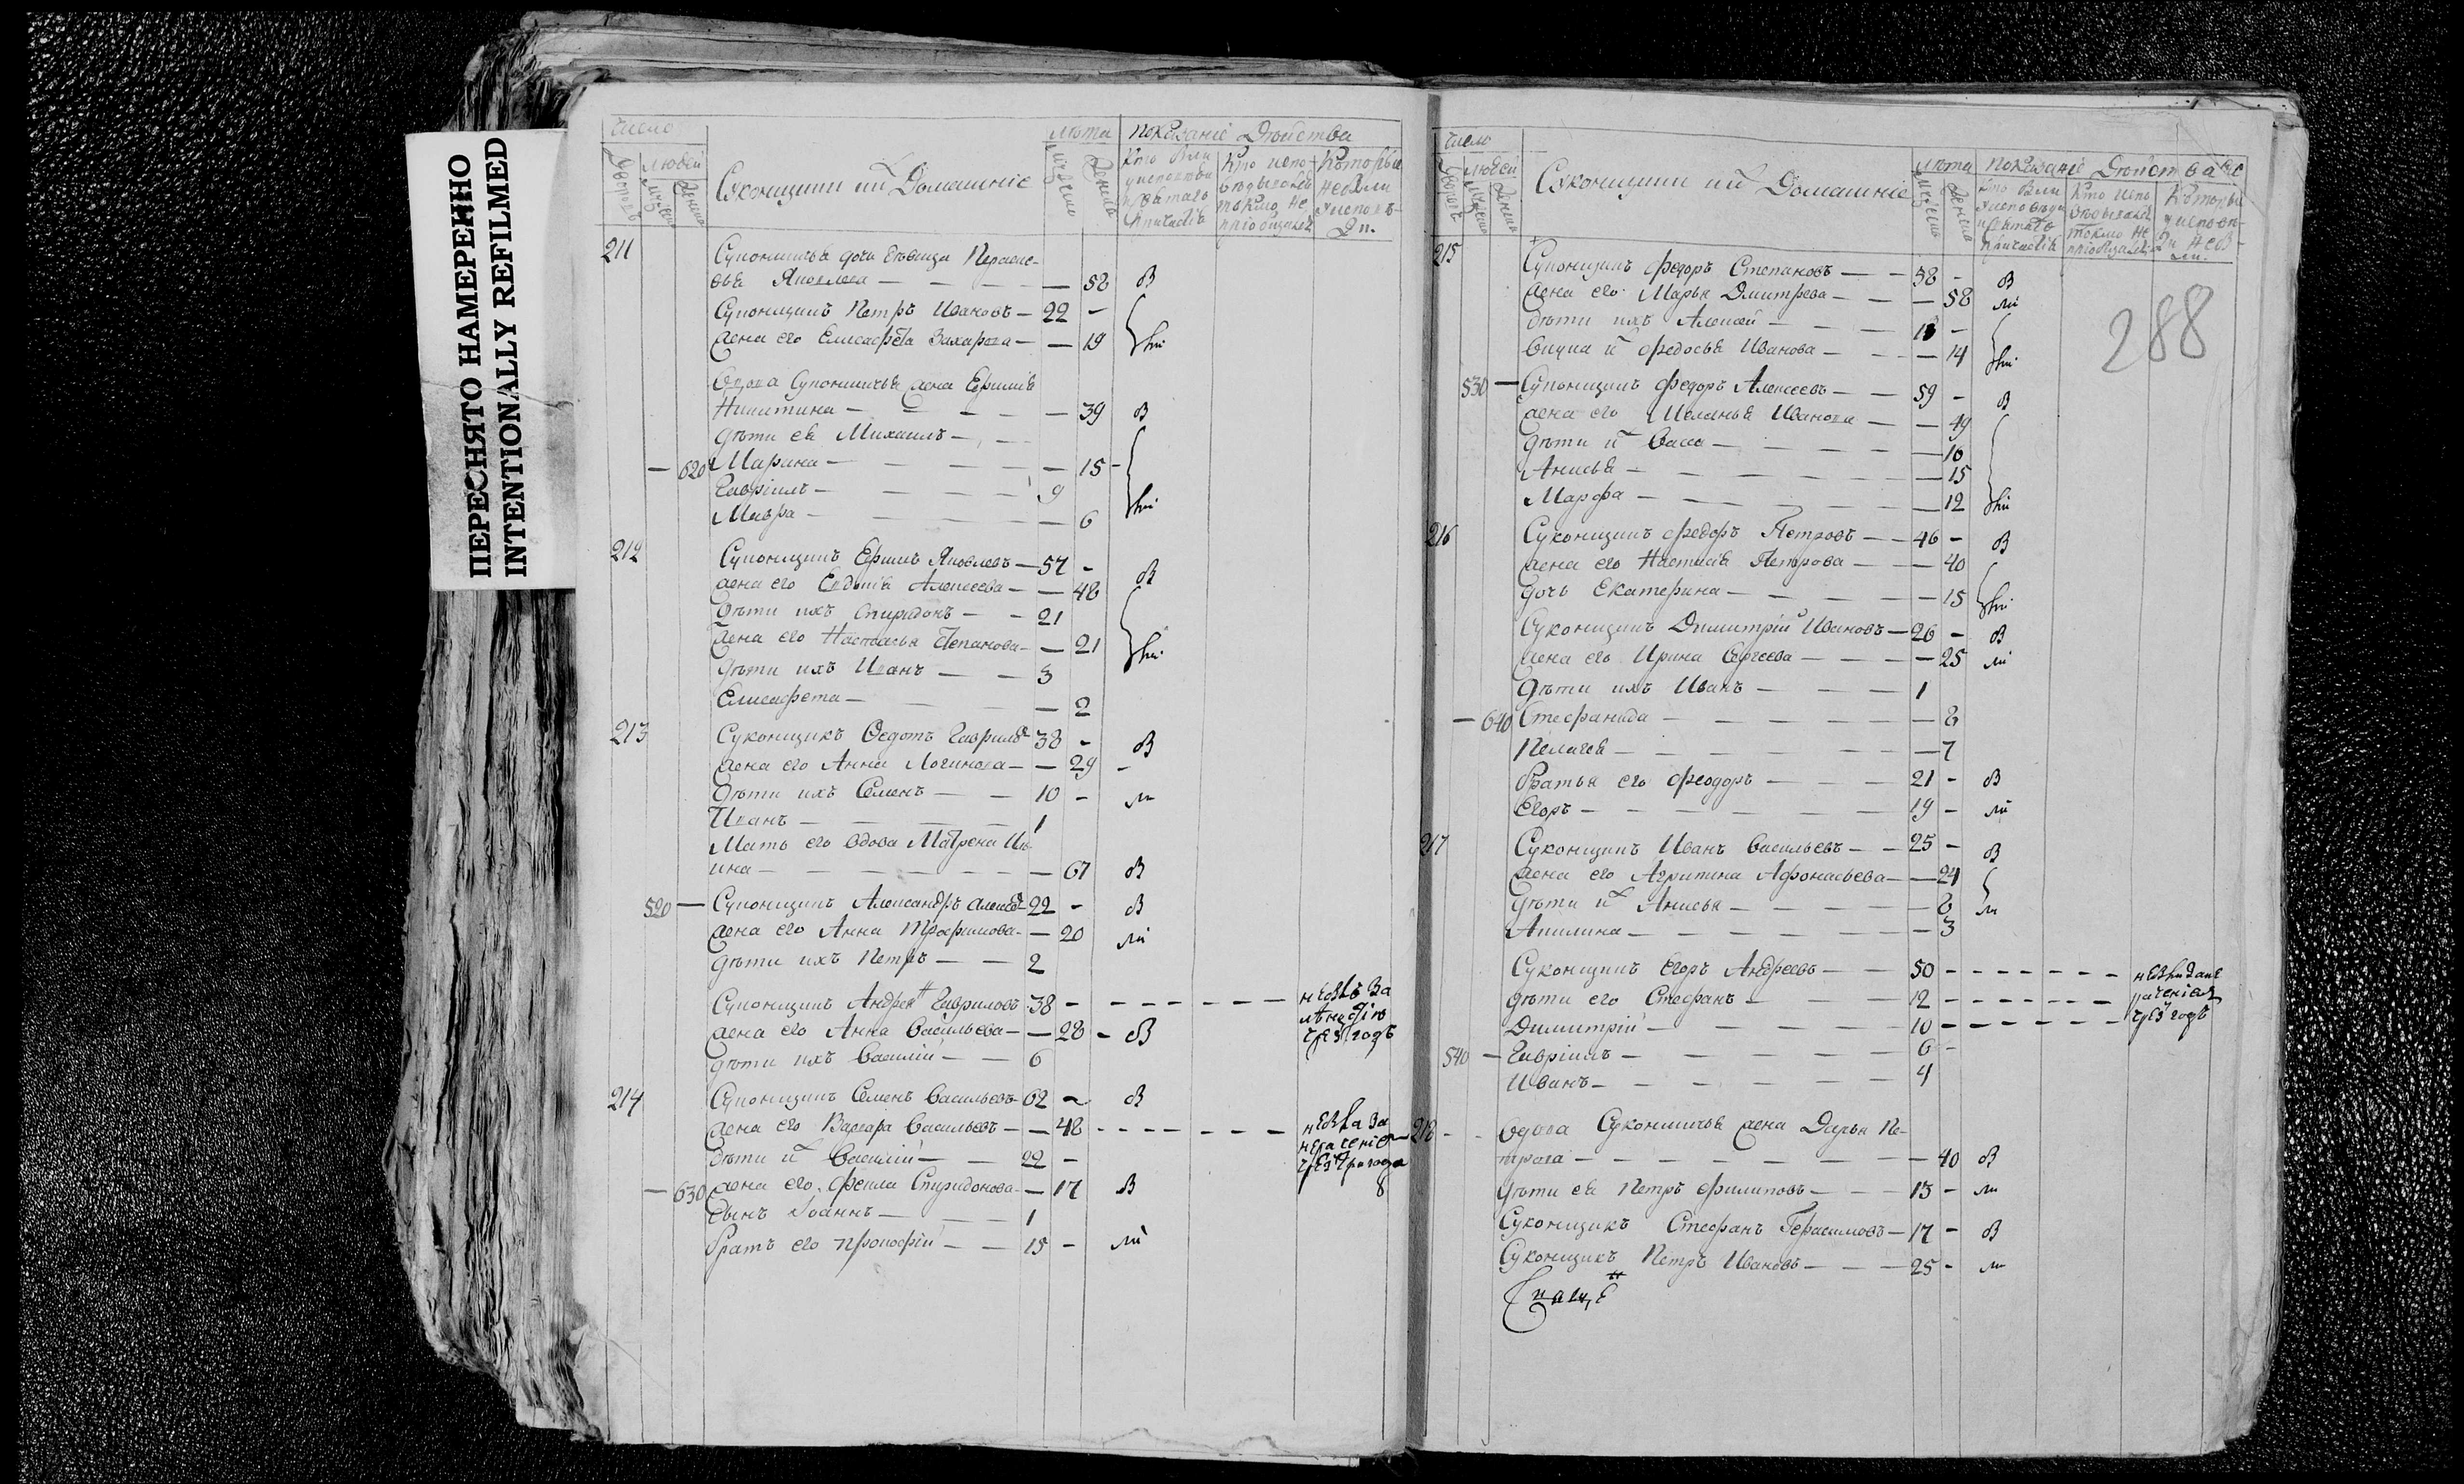 ПЕРЕСНЯТО НАМЕРЕННО
INTENTIONALLY REFILMED
число
Дворовъ
людей
мужеска
женска
Суконщики и Домашніе
лѣта
мужеска
женска
показаніе Дѣйства
Кто были
у исповѣди
и святаго
причастія
Кто испо-
вѣдывался
токмо не
пріобщился
Которые
не были
у исповѣ-
ди.
211
Суконничья дочь дѣвица
Яковлева — — — — 58 В
Суконщикъ Петръ Ивановъ — 22 —
жена его Елисафета Захарова — — 19
Вдова Суконничья жена Ефимія
Никитина — — — — — 39 В
дѣти ея Михаилъ —
— 620 Марина — — — — — 15
Гавріилъ — — — — 9
Мавра — — — — 6
212
Суконщикъ Ефимъ Яковлевъ — 57 — В
жена его Евдокія Алексеева — — 48
дѣти ихъ Спиридонъ — — 21
жена его Настасья Степанова — — 21
дѣти ихъ Иванъ — — 3
Елисафета — — — 2
213
Суконщикъ Ѳедотъ Гаврилов 38 — В
жена его Анна Логинова — — 29 —
дѣти ихъ Семенъ — — 10 — ли
Иванъ — — — — 1
Мать его вдова Матрена Иль
ина — — — — — — 67 В
520 — Суконщикъ Александръ Алексеев 22 — В
жена его Анна Трофимова — — 20 ли
дѣти ихъ Петръ — — 2
Суконщикъ Андрей Гавриловъ 38 — — — — — — — небылъ за
жена его Анна Васильева — — 28 — В
чрез годъ
дѣти ихъ Василій — — 6
214
Суконщикъ Семенъ Васильевъ 62 — В
жена его Варвара Васильевъ — — 48 — — — — — — — небыла за
нераченіем
чрез три года
дѣти и Василій — — 22 —
— 630 жена его Фекла Спиридонова — — 17 В
8
сынъ Іоаннъ — — — 1
Братъ его Прокофій — — 15 — ли
число
Дворовъ
людей
мужеска
женска
Суконщики и Домашніе
лѣта
мужеска
женска
показаніе Дѣйства
Кто были
у исповѣди
и святаго
причастія
Кто испо
вѣдывался
токмо не
пріобщился
Которые
у исповѣ-
ди не бы-
ли.
288
215
Суконщикъ Федоръ Степановъ — — 58 — В
жена его Марья Дмитрева — — — 58 ли
дѣти ихъ Алексей — — —
внука и Федосья Иванова — — — 14
530 — Суконщикъ Федоръ Алексеевъ — — 59 — В
жена его Меланья Иванова — — 49
дѣти и Васса — — — — — 16
Анисья — — — — — — 15
Марфа — — — — — 12
216
Суконщикъ Федоръ Петровъ — — 46 — В
жена его Настасія Петрова — — — 40
дочь Екатерина — — — — — 15
Суконщикъ Димитрій Ивановъ — 26 — В
жена его Ирина Сергеева — — — — 25 ли
дѣти ихъ Иванъ — — — 1
— 640 Стефанида — — — — — 8
Пелагея — — — — — — 7
Братья его Феодоръ — — — 21 — В
Егоръ — — — — — — 19 — ли
217
Суконщикъ Иванъ Васильевъ — — 25 — В
жена его Агрипина Афонасьева — — 24
дѣти и Анисья — — — — — 8 ли
Акилина — — — — — — 3
Суконщикъ Егоръ Андреевъ — — 50 — — — — — — —
дѣти его Стефанъ — — — 12 — — — — — — —
Димитрій — — — — — 10 — — — — — — — чрез годъ
540 — Гавріилъ — — — — — 6 —
Иванъ — — — — — — 4
218
Вдова Суконничья жена Дарья Пе-
трова — — — — — — — 40 В
дѣти ея Петръ Филиповъ — — — 13 — ли
Суконщикъ Стефанъ Герасимовъ — 17 — В
Суконщикъ Петръ Ивановъ — — — 25 — ли